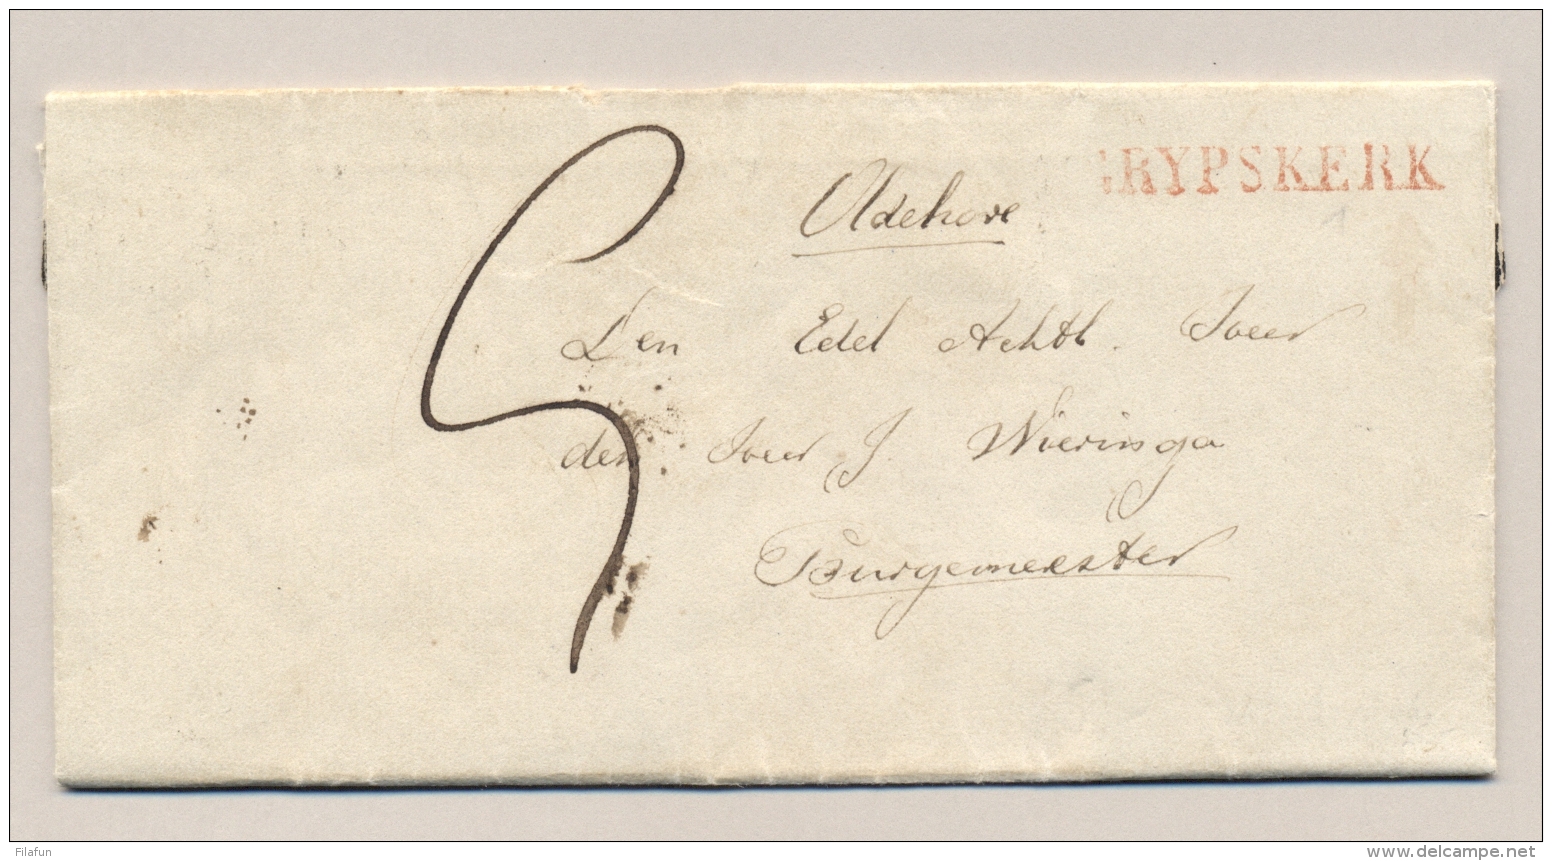 GRYPSKERK
Oldehove
Den Edel Achtb. Heer
den Heer J. Wieringa
Burgemeester
5
Filafun
www.delcampe.net